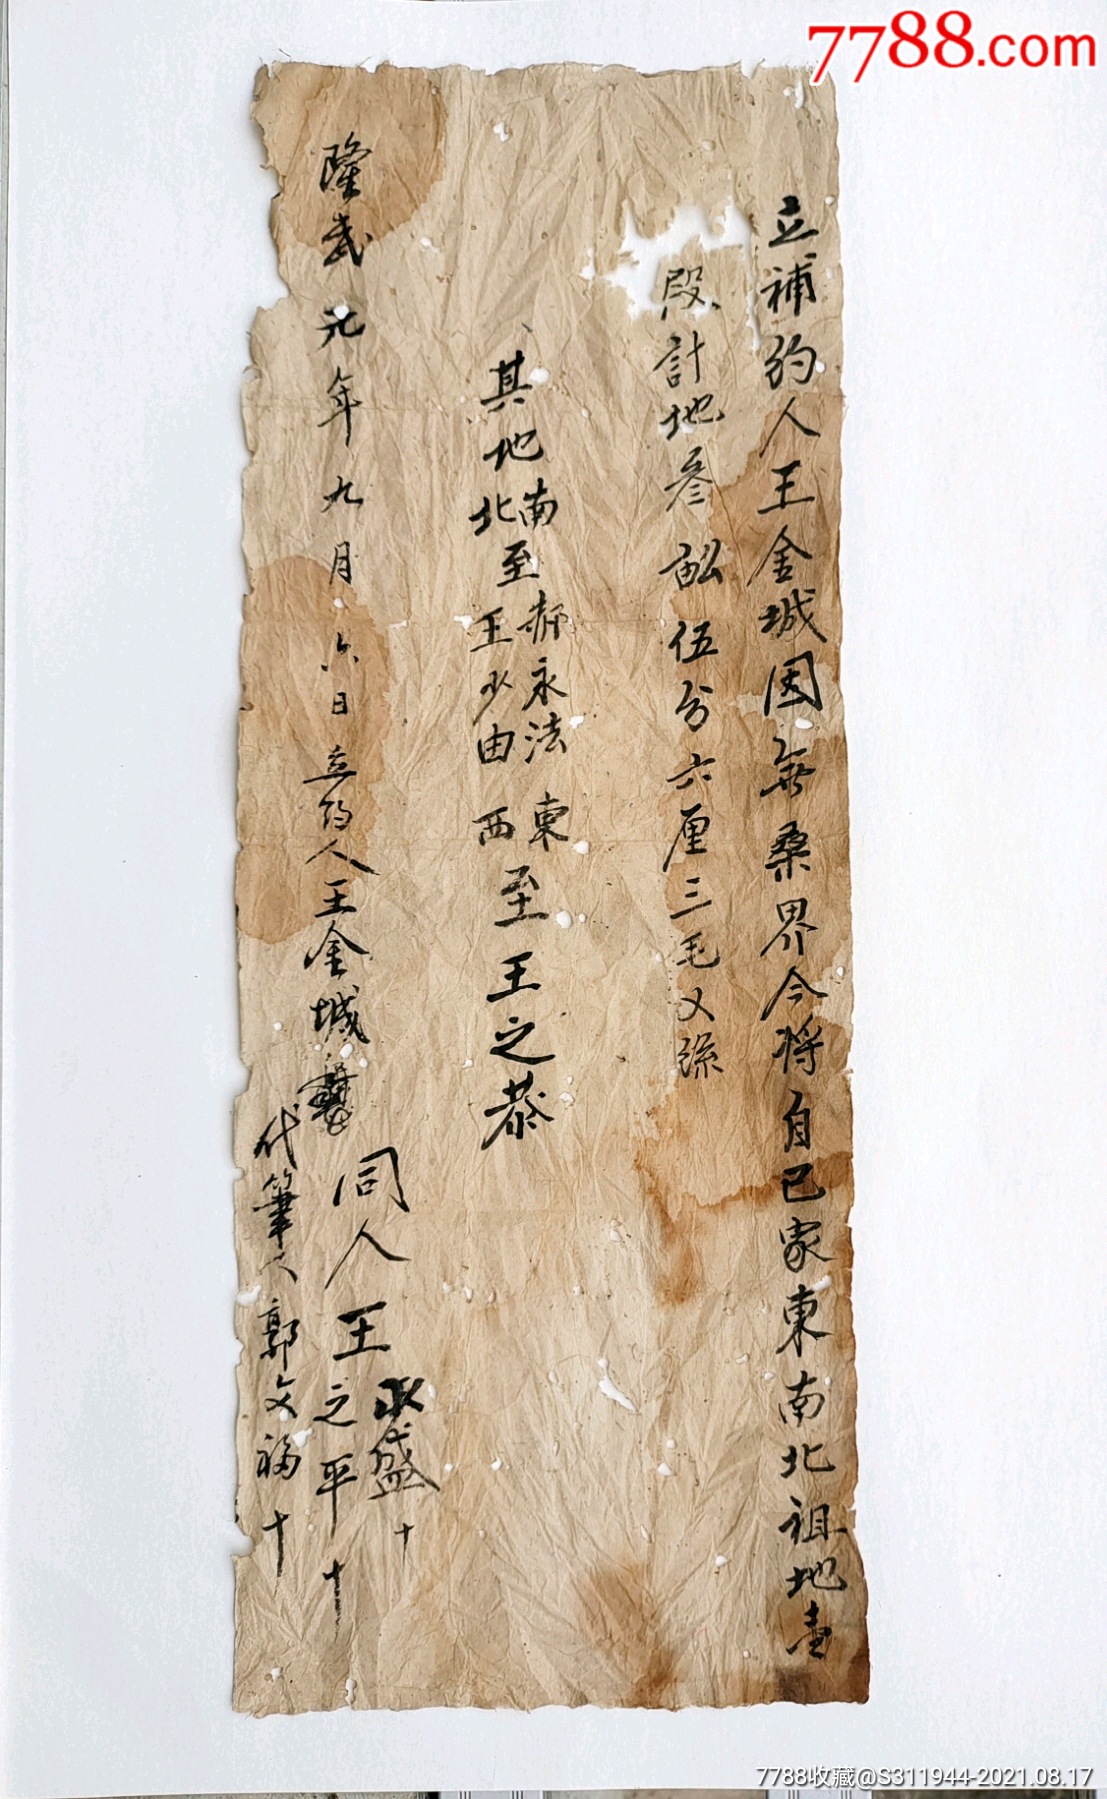 7788.com
立補約人王金城因無桑界今将自己家東南北祖地壹
段計地叁畝伍分六厘三毛乂絲
其地南至郝永法東至王之恭
北王少由西
隆武元年九月六日立約人王金城
同人王永盛十
之平十
代筆人郭文福十
7788收藏@S311944-2021.08.17